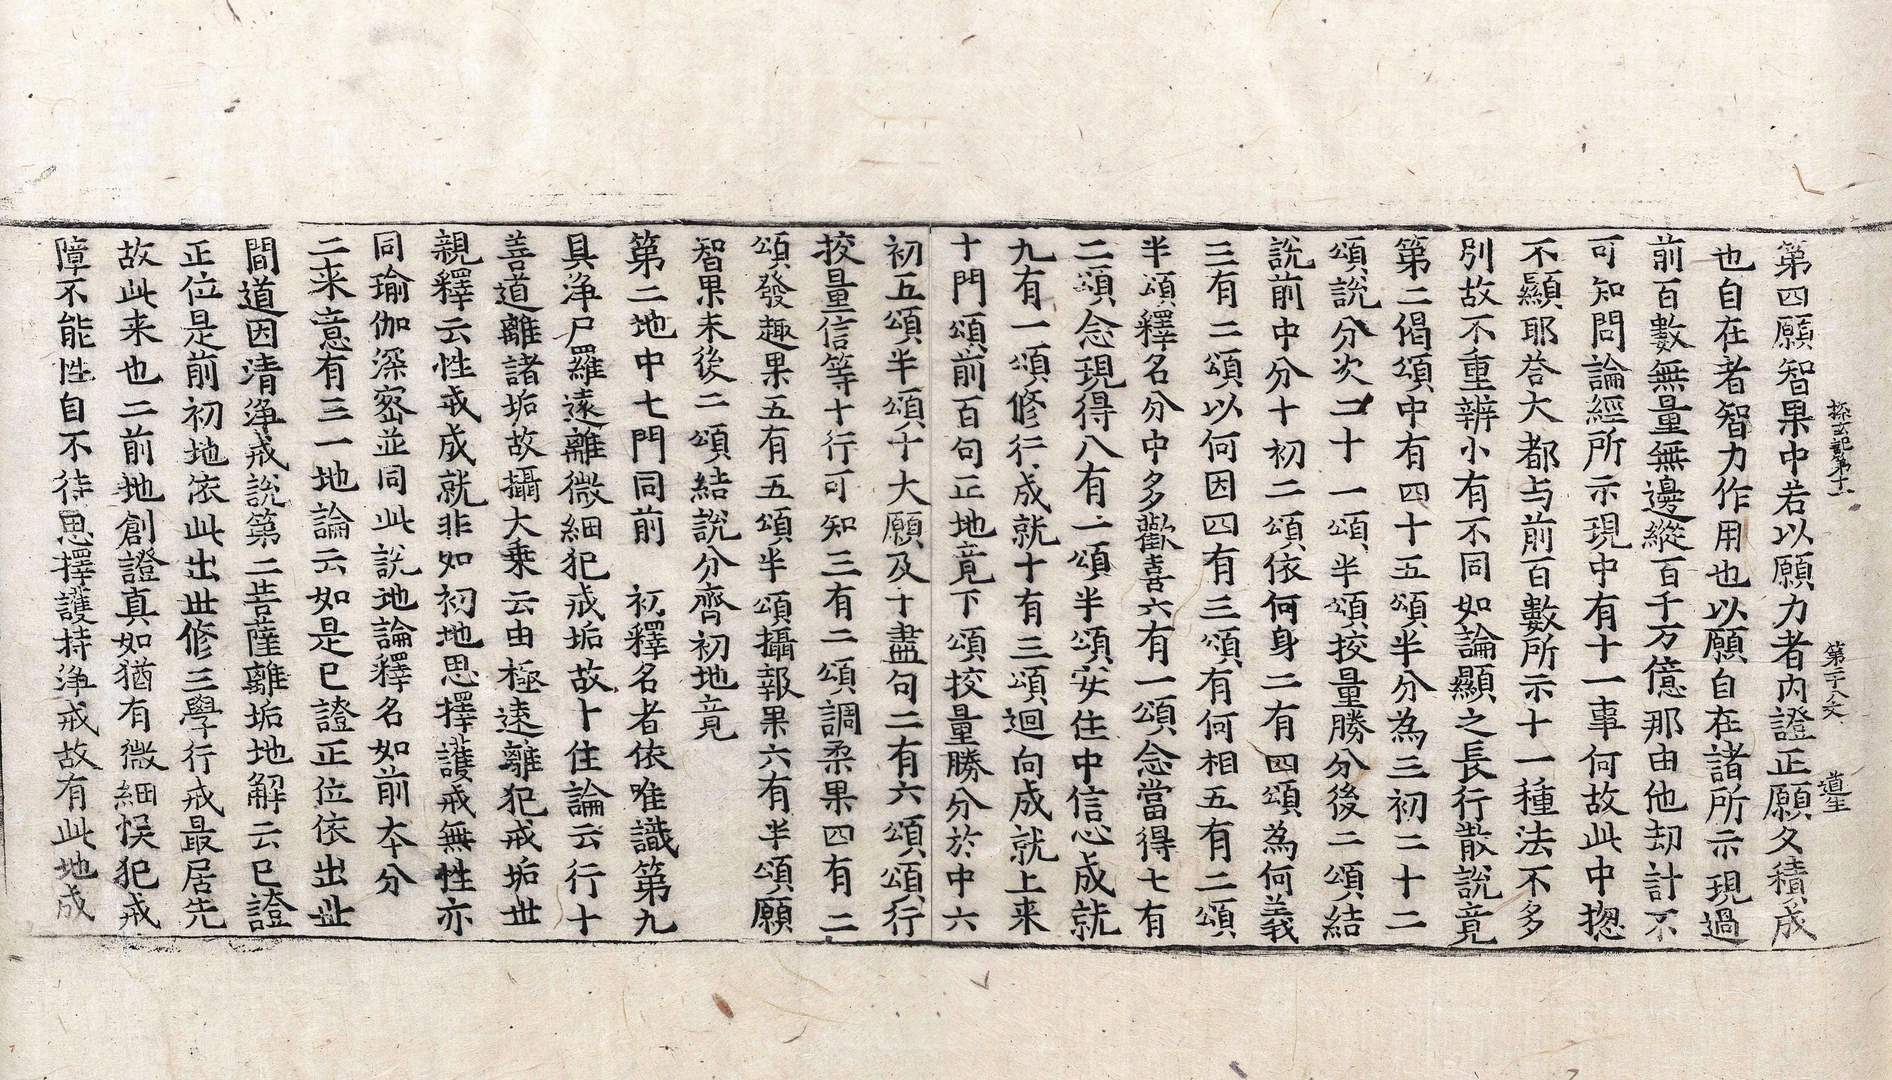 探玄記第十一 第二十八丈 道生
第四願智果中若以願力者內證正願久積成
也自在者智力作用也以願自在諸所示現過
前百數無量無邊縱百千万億那由他劫計不
可知問論經所示現中有十一事何故此中揔
不顯耶荅大都与前百數所示十一種法不多
別故不重辨小有不同如論顯之長行散說竟
第二偈頌中有四十五頌半分為三初二十二
頌說分次二十一頌半頌挍量勝分後二頌結
說前中分十初二頌依何身二有四頌為何義
三有二頌以何因四有三頌有何相五有二頌
半頌釋名分中多歡喜六有一頌念當得七有
二頌念現得八有一頌半頌安住中信心成就
九有一頌修行成就十有三頌迴向成就上来
十門頌前百句正地竟下頌挍量勝分於中六
初五頌半頌十大願及十盡句二有六頌頌行
挍量信等十行可知三有二頌調柔果四有二
頌發趣果五有五頌半頌攝報果六有半頌願
智果末後二頌結說分齊初地竟
第二地中七門同前　初釋名者依唯識第九
具淨尸羅遠離微細犯戒垢故十住論云行十
善道離諸垢故攝大乗云由極遠離犯戒垢世
親釋云性戒成就非如初地思擇護戒無性亦
同瑜伽深宻並同此說地論釋名如前夲分
二来意有三一地論云如是已證正位依出世
間道因清淨戒說第二菩薩離垢地解云已證
正位是前初地依此出世修三學行戒最居先
故此来也二前地創證真如猶有微細悞犯戒
障不能性自不待思擇護持淨戒故有此地成